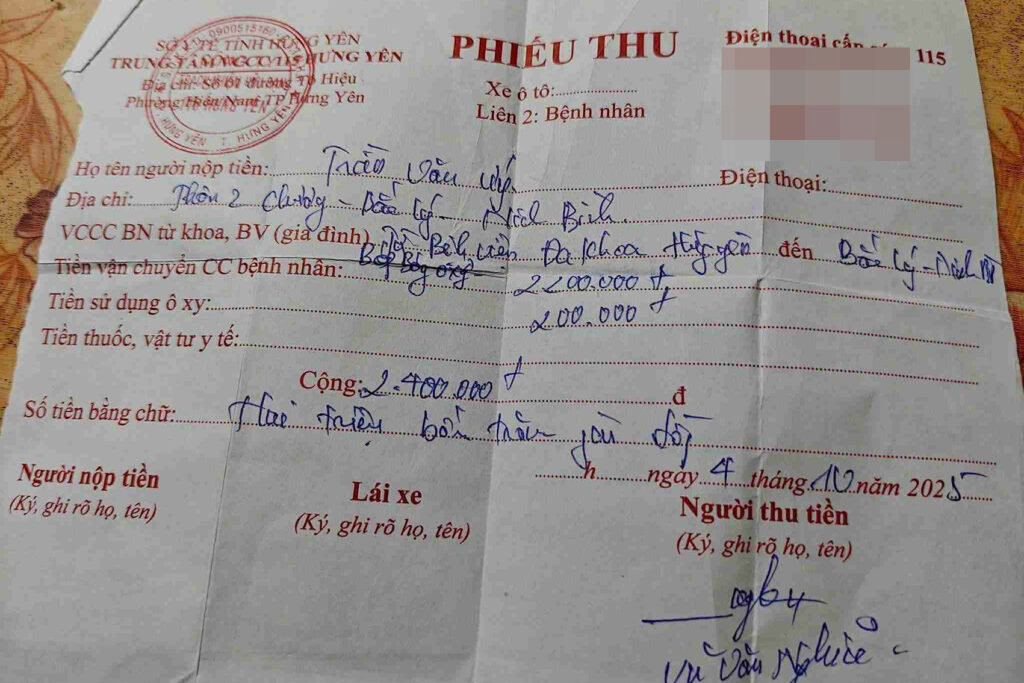 SỞ Y TẾ TỈNH HƯNG YÊN
TRUNG TÂM VCCC 115 HƯNG YÊN
Địa chỉ: Số 01 đường Tô Hiệu
Phường Hiến Nam TP Hưng Yên
0900515160
HƯNG YÊN T. HƯNG YÊN
PHIẾU THU
Xe ô tô:
Liên 2: Bệnh nhân
Điện thoại cấp 115
Họ tên người nộp tiền: Trần Văn
Điện thoại:
Địa chỉ: Thôn 2 - Bắc Lý - Ninh Bình
VCCC BN từ khoa, BV (gia đình) Từ Bệnh viện Đa khoa Hưng Yên đến Bắc Lý - Ninh
Tiền vận chuyển CC bệnh nhân: Bóp Bóng oxy 2200.000 đ
Tiền sử dụng ô xy: 200.000 đ
Tiền thuốc, vật tư y tế:
Cộng: 2.400.000 đ đ
Số tiền bằng chữ: Hai triệu bốn trăm đồng
h ngày 4 tháng 10 năm 2025
Người nộp tiền
(Ký, ghi rõ họ, tên)
Lái xe
(Ký, ghi rõ họ, tên)
Người thu tiền
(Ký, ghi rõ họ, tên)
Vũ Văn